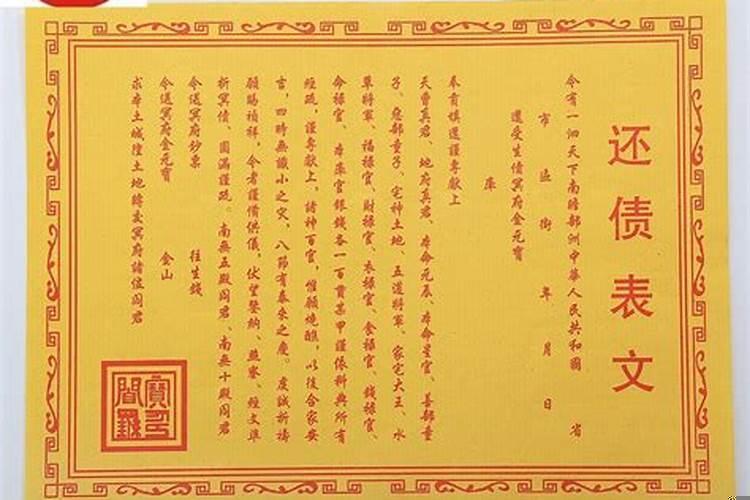 还债表文
今有一泗天下南瞻部洲中華人民共和國 省
市 區 街 年 月 日
還受生債冥府金元寶
庫
奉冥填還謹專獻上
天曹真君、地府真君、本命元辰、本命星官、善部童
子、惡部童子、宅神土地、五道將軍、家宅大王、水
草將軍、福祿官、財祿官、衣祿官、食祿官、錢祿官、
命祿官、本庫官銀錢各一百貫某甲謹依科典所有
經疏，謹專獻上，諸神百官，惟願燒醮，以後合家安
吉，四時無識小之灾，八節有泰來之慶。虔誠祈禱
願賜禎祥，今者謹備供儀，伏望鑒納、燕寮、經文準
折冥債、圓滿謹疏。南無五殿閻君、南無十殿閻君
今送冥府鈔票 往生錢
今送冥府金元寶 金山
求本土城隍土地轉交冥府諸位閻君